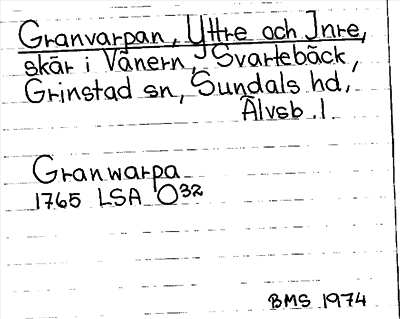 Granvarpan, Yttre och Inre,
skär i Vänern, Svartebäck,
Grinstad sn, Sundals hd,
Älvsb. l.
Granwarpa
1765 LSA O32
BMS 1974